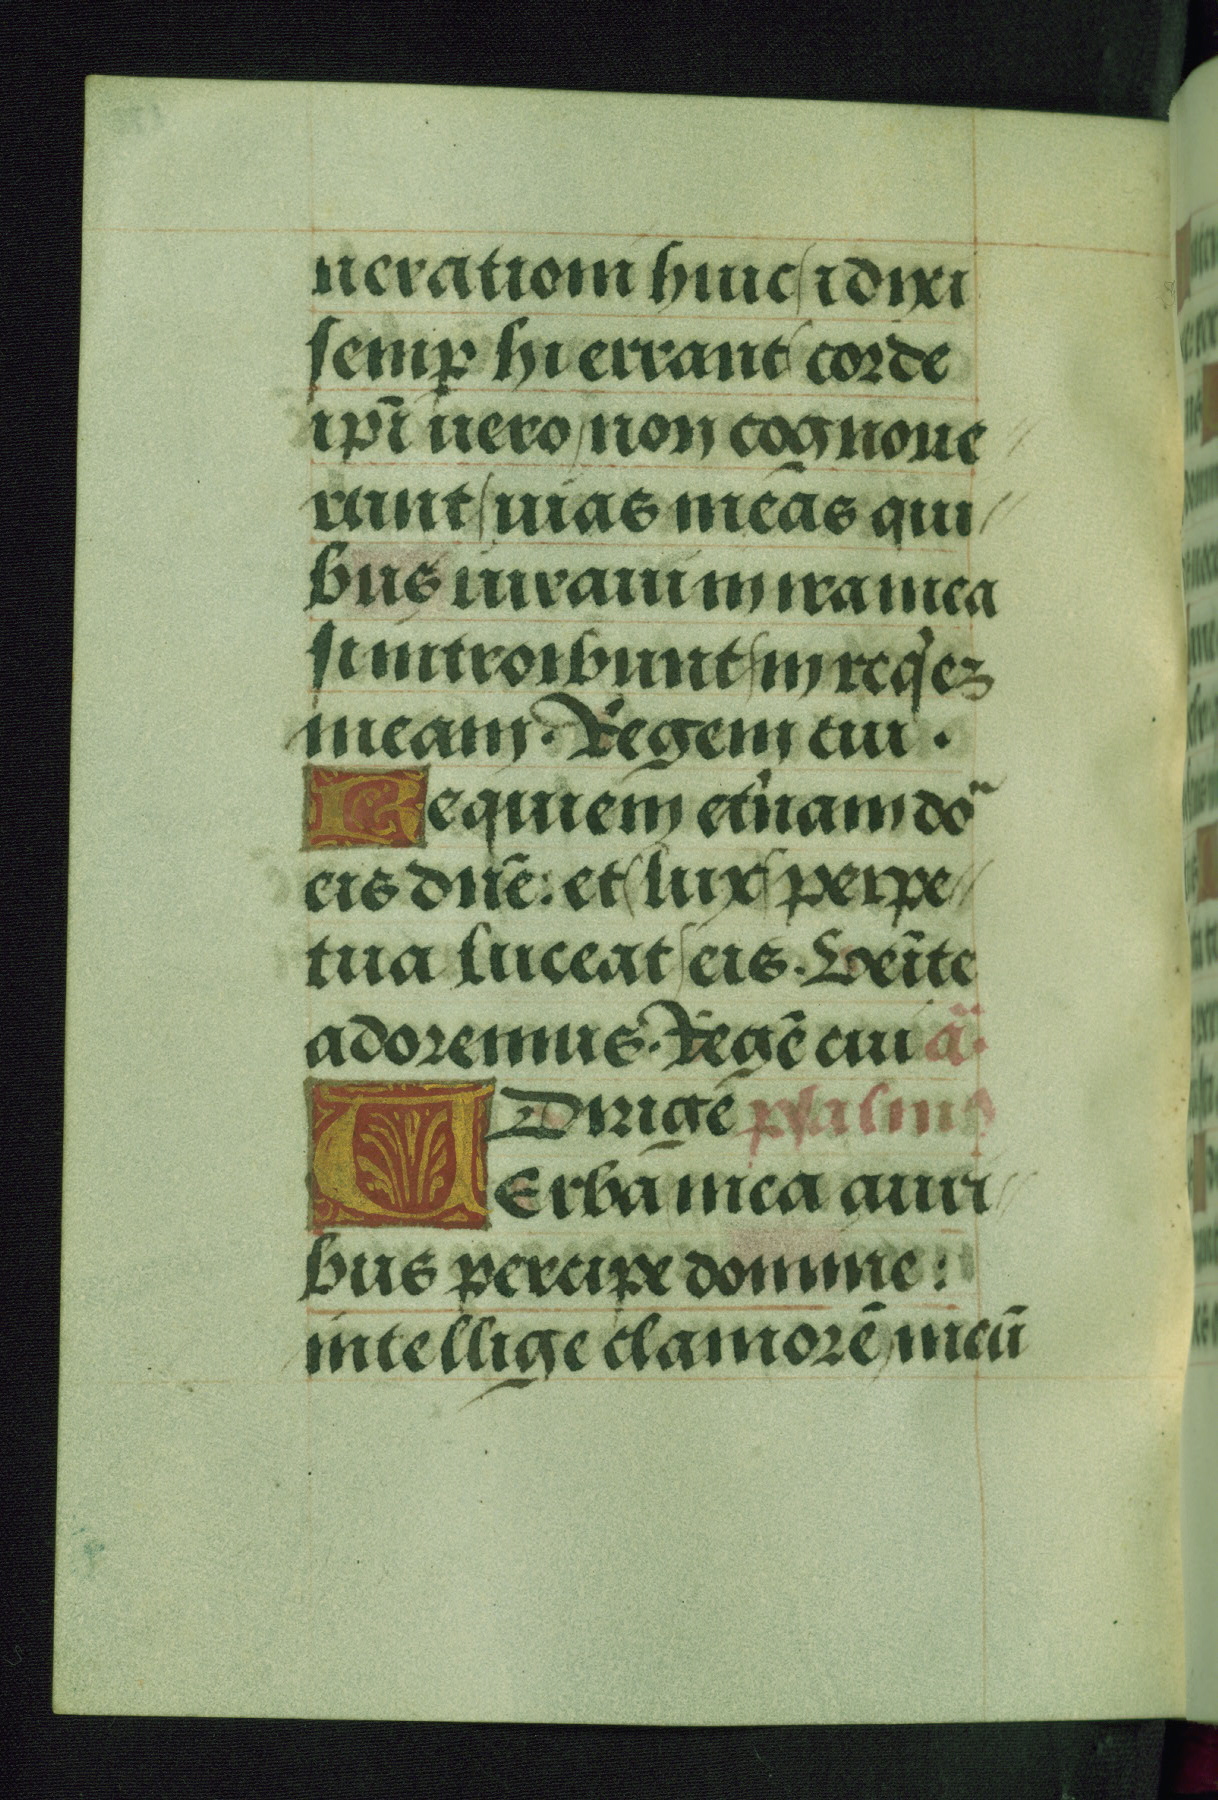 nerationi huic, ⁊ dixi
semp hi errant corde
ip̄i uero, non cognoue
rant, uias meas qui
bus iuraui in ira mea
si introibunt, in req̓eʒ
meam. Regem cui.
Requiem et̓nam do
eis dn̄e: et lux perpe
tua luceat eis. Ven̄ite
adoremus. Regē cui a͞.
Dirigē psalmꝰ
Verba mea auri
bus percipe domine:
intellige clamorē meū